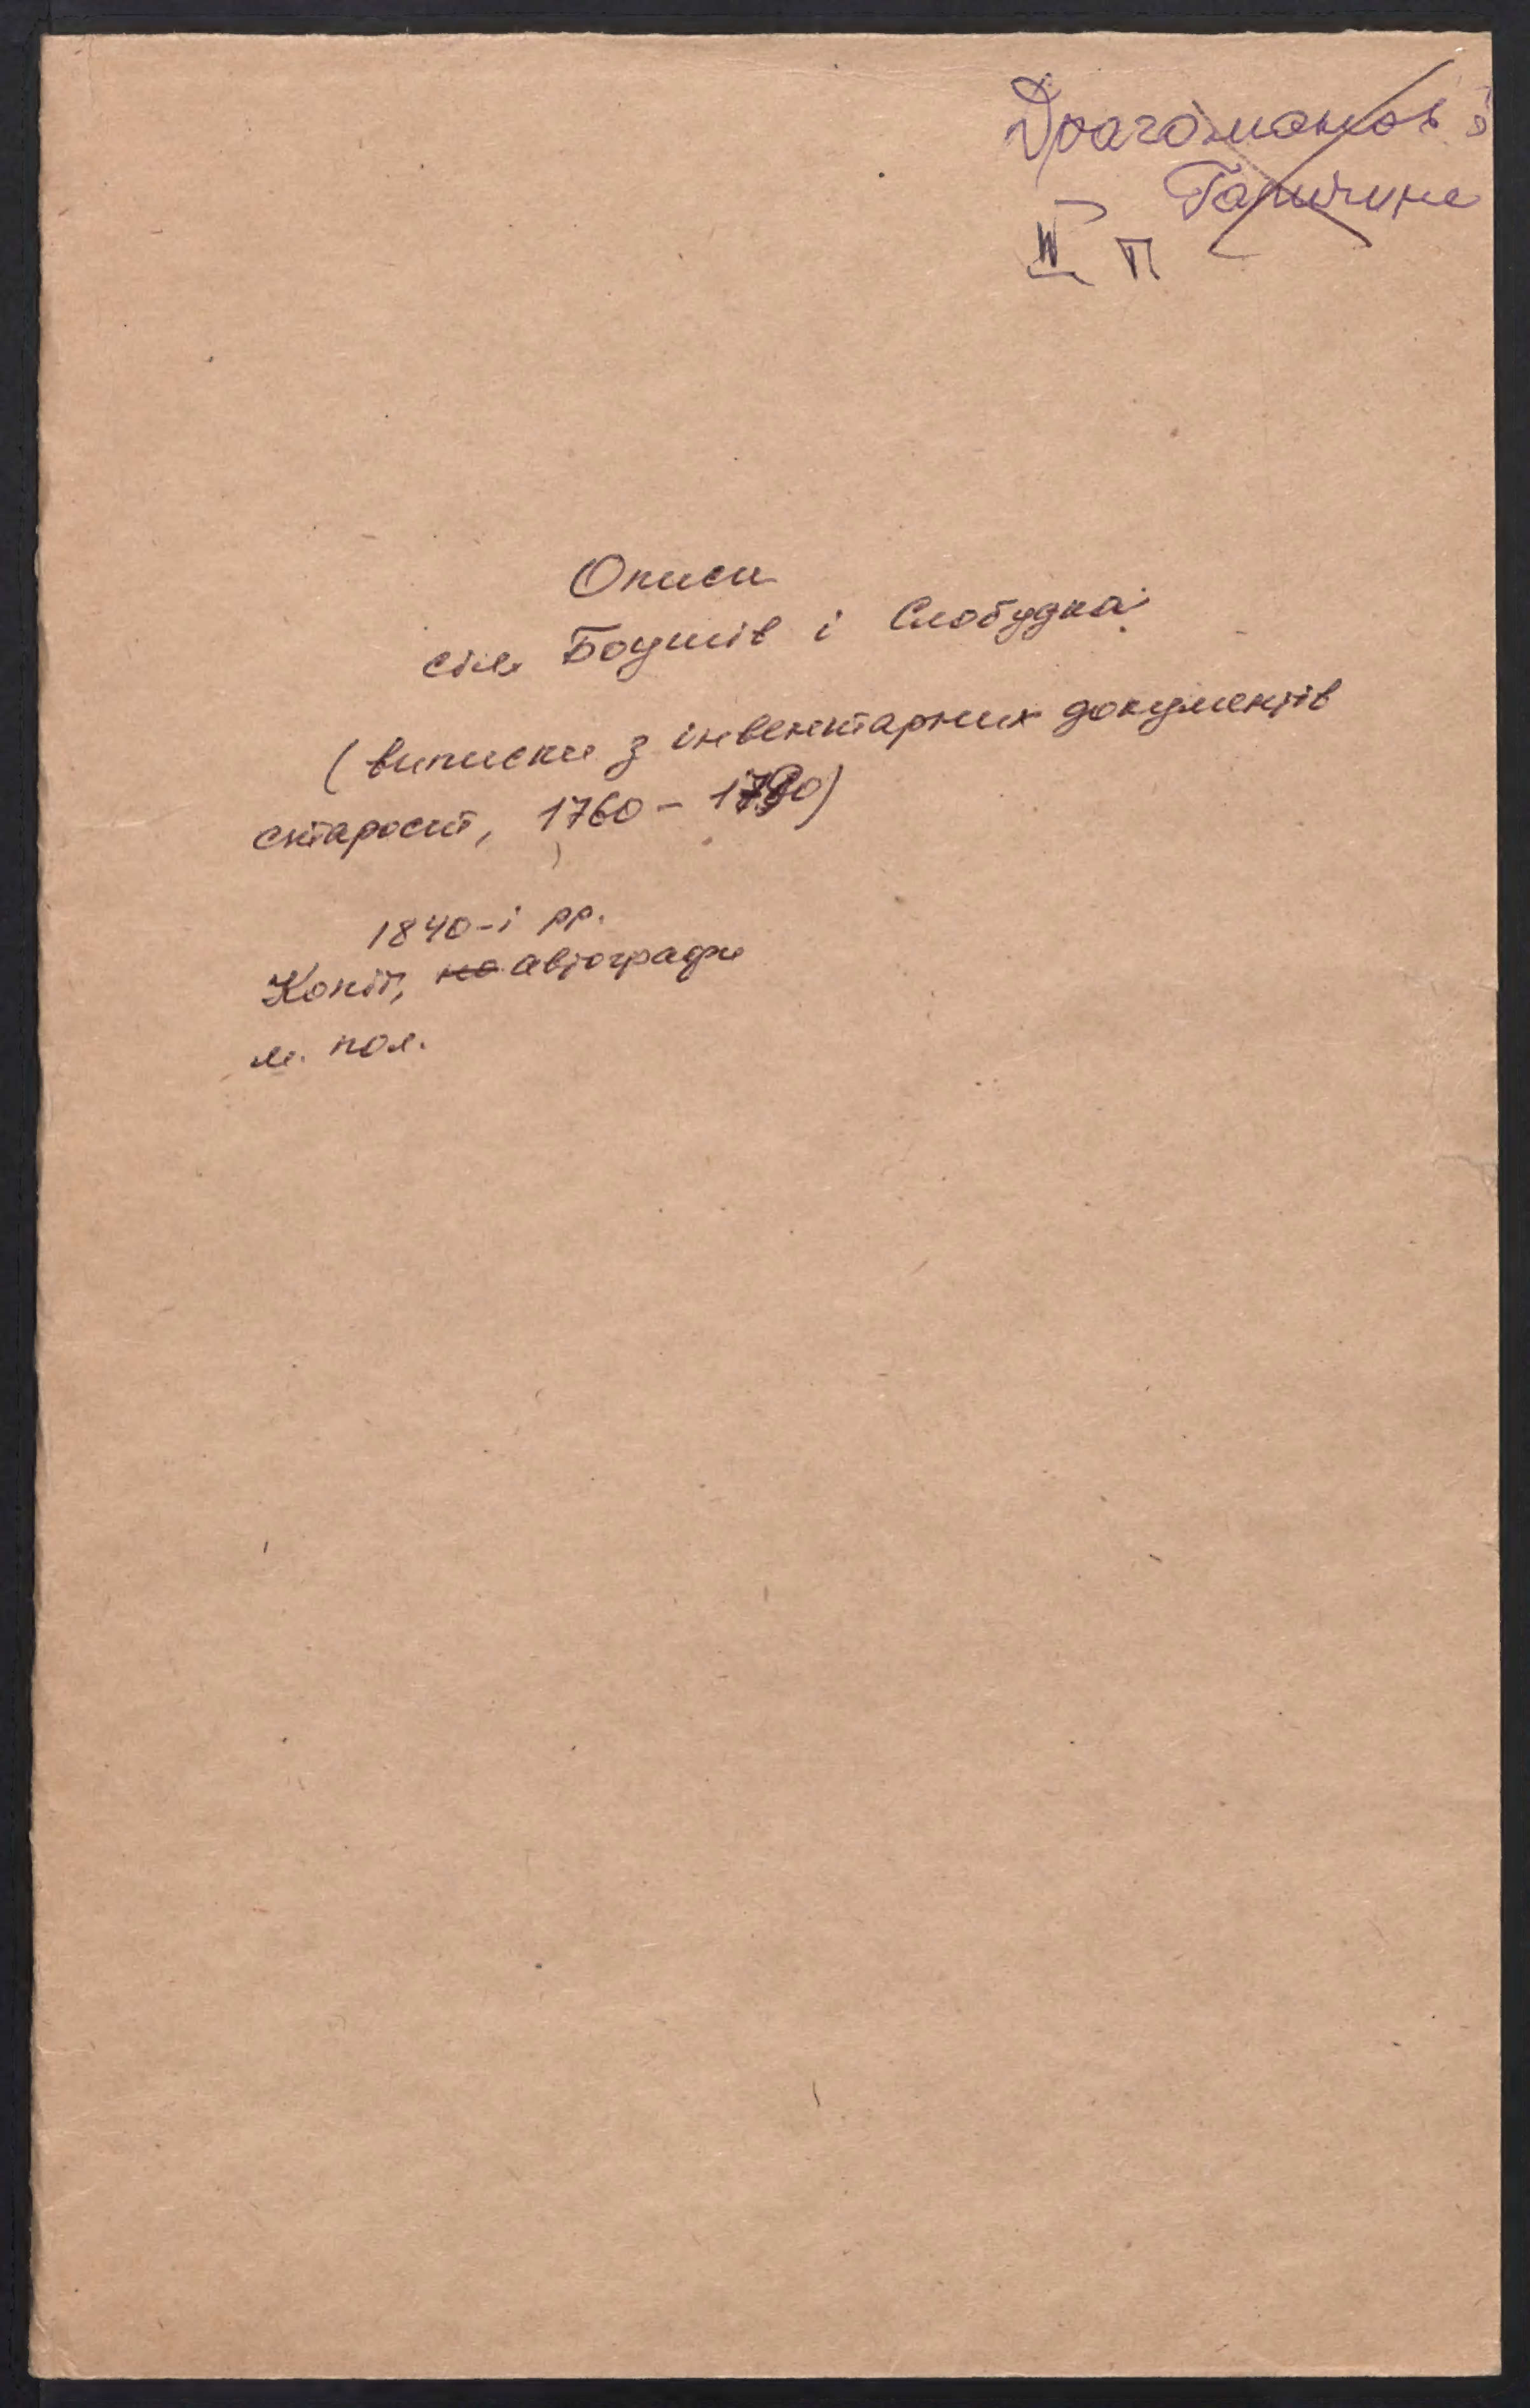 Драгоманов і
Галичина
IV П
Описи
сіл Боушів і Слобудка
(виписки з інвентарних документів
староств, 1760 - 1790)
1840-і рр.
Копії, автографи
м. пол.